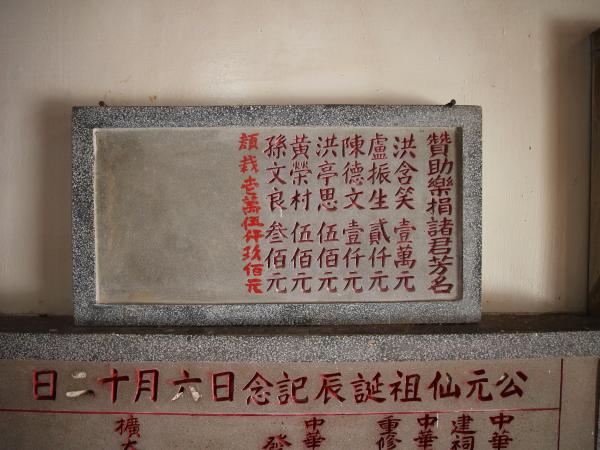 贊助樂捐諸君芳名
洪含笑 壹萬元
盧振生 貳仟元
陳德文 壹仟元
洪亭思 伍佰元
黃榮村 伍佰元
孫文良 叁佰元
栽 壱萬伍仟玖佰元
公元仙祖誕辰記念日六月十二日
中華
建祠
中華
重修
中華
發
擴大